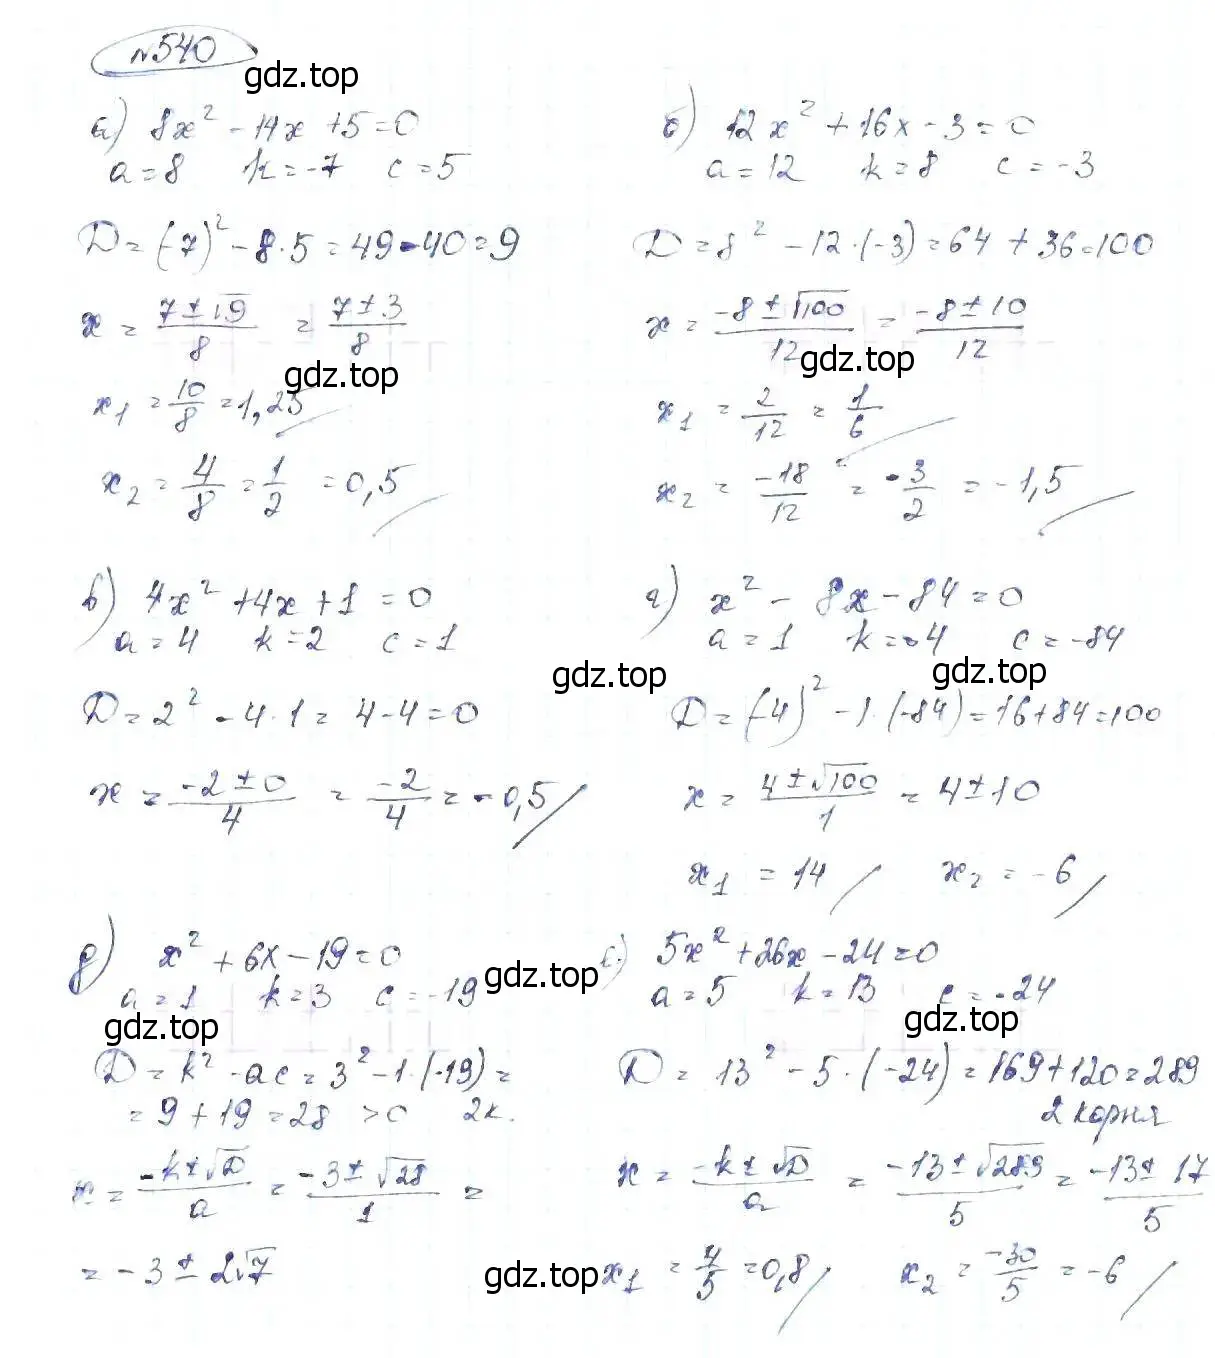 №540
gdz.top
а) 8x² - 14x + 5 = 0
a = 8 k = -7 c = 5
D = (-7)² - 8·5 = 49 - 40 = 9
x = (7 ± √9)/8 = (7 ± 3)/8
gdz.top
x₁ = 10/8 = 1,25
x₂ = 4/8 = 1/2 = 0,5
б) 12x² + 16x - 3 = 0
a = 12 k = 8 c = -3
D = 8² - 12·(-3) = 64 + 36 = 100
x = (-8 ± √100)/12 = (-8 ± 10)/12
gdz.top
x₁ = 2/12 = 1/6
x₂ = -18/12 = -3/2 = -1,5
в) 4x² + 4x + 1 = 0
a = 4 k = 2 c = 1
gdz.top
D = 2² - 4·1 = 4 - 4 = 0
x = (-2 ± 0)/4 = -2/4 = -0,5
г) x² - 8x - 84 = 0
a = 1 k = -4 c = -84
gdz.top
D = (-4)² - 1·(-84) = 16 + 84 = 100
x = (4 ± √100)/1 = 4 ± 10
x₁ = 14 x₂ = -6
д) x² + 6x - 19 = 0
gdz.top
a = 1 k = 3 c = -19
gdz.top
D = k² - ac = 3² - 1·(-19) =
= 9 + 19 = 28 > 0 2к.
x = (-k ± √D)/a = (-3 ± √28)/1 =
= -3 ± 2√7
gdz.top
е) 5x² + 26x - 24 = 0
a = 5 k = 13 c = -24
gdz.top
D = 13² - 5·(-24) = 169 + 120 = 289
2 корня
x = (-k ± √D)/a = (-13 ± √289)/5 = (-13 ± 17)/5
x₁ = 4/5 = 0,8 x₂ = -30/5 = -6